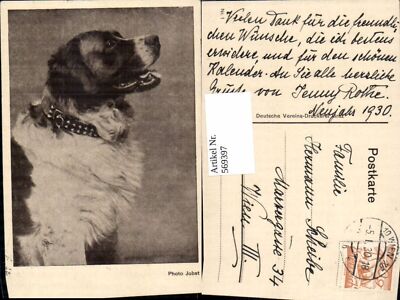 Photo Jobst
Vielen Dank für die freundli-
chen Wünsche, die ich bestens
erwidere, und für den schönen
Kalender. An Sie alle herzliche
Grüße von Jenny Rothe.
Neujahr 1930.
Deutsche Vereins-Druckerei
Artikel Nr.
569397
Postkarte
Familie
Hermann Scheibe
Marxergasse 34
Wien III.
WIEN
-5.I.30